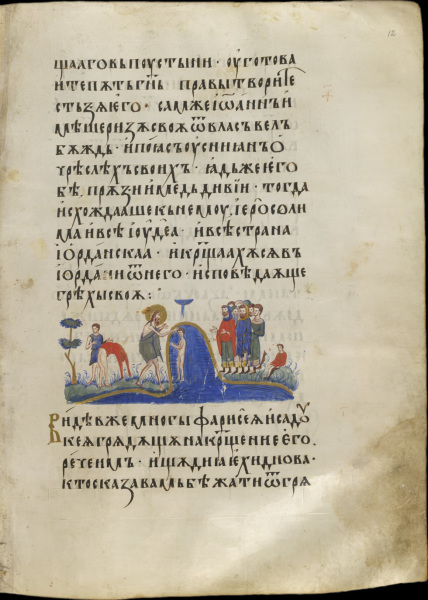 щааго вь поустыни · оуготова
ите пѫть гн҃ь правы творите
стьзѧ его · сам же іѡаннь и
мѣше ризѫ своѫ ѿ власъ вел
бѫждь · и поѧсъ оусниань о
чрѣслѣхъ своихъ · ꙗдь же его
бѣ · прѫзи и медь дивіи · тогда
исхождааше къ немоу · іерⷭ҇оли
ма и всѣ іоудеа · и всѣ страна
іорданскаа · и крⷭ҇щаахѫсѧ въ
іордани ѿ него · исповѣдаѫще
грѣхы своѧ :
Видѣв же многы фарисеѧ и садоу
кеѧ грѧдѫщѧ на крⷭ҇щение его ·
рече имъ · ищѧдиа ехиднова ·
кто сказа вамь бѣжати ѿ грѧ
12